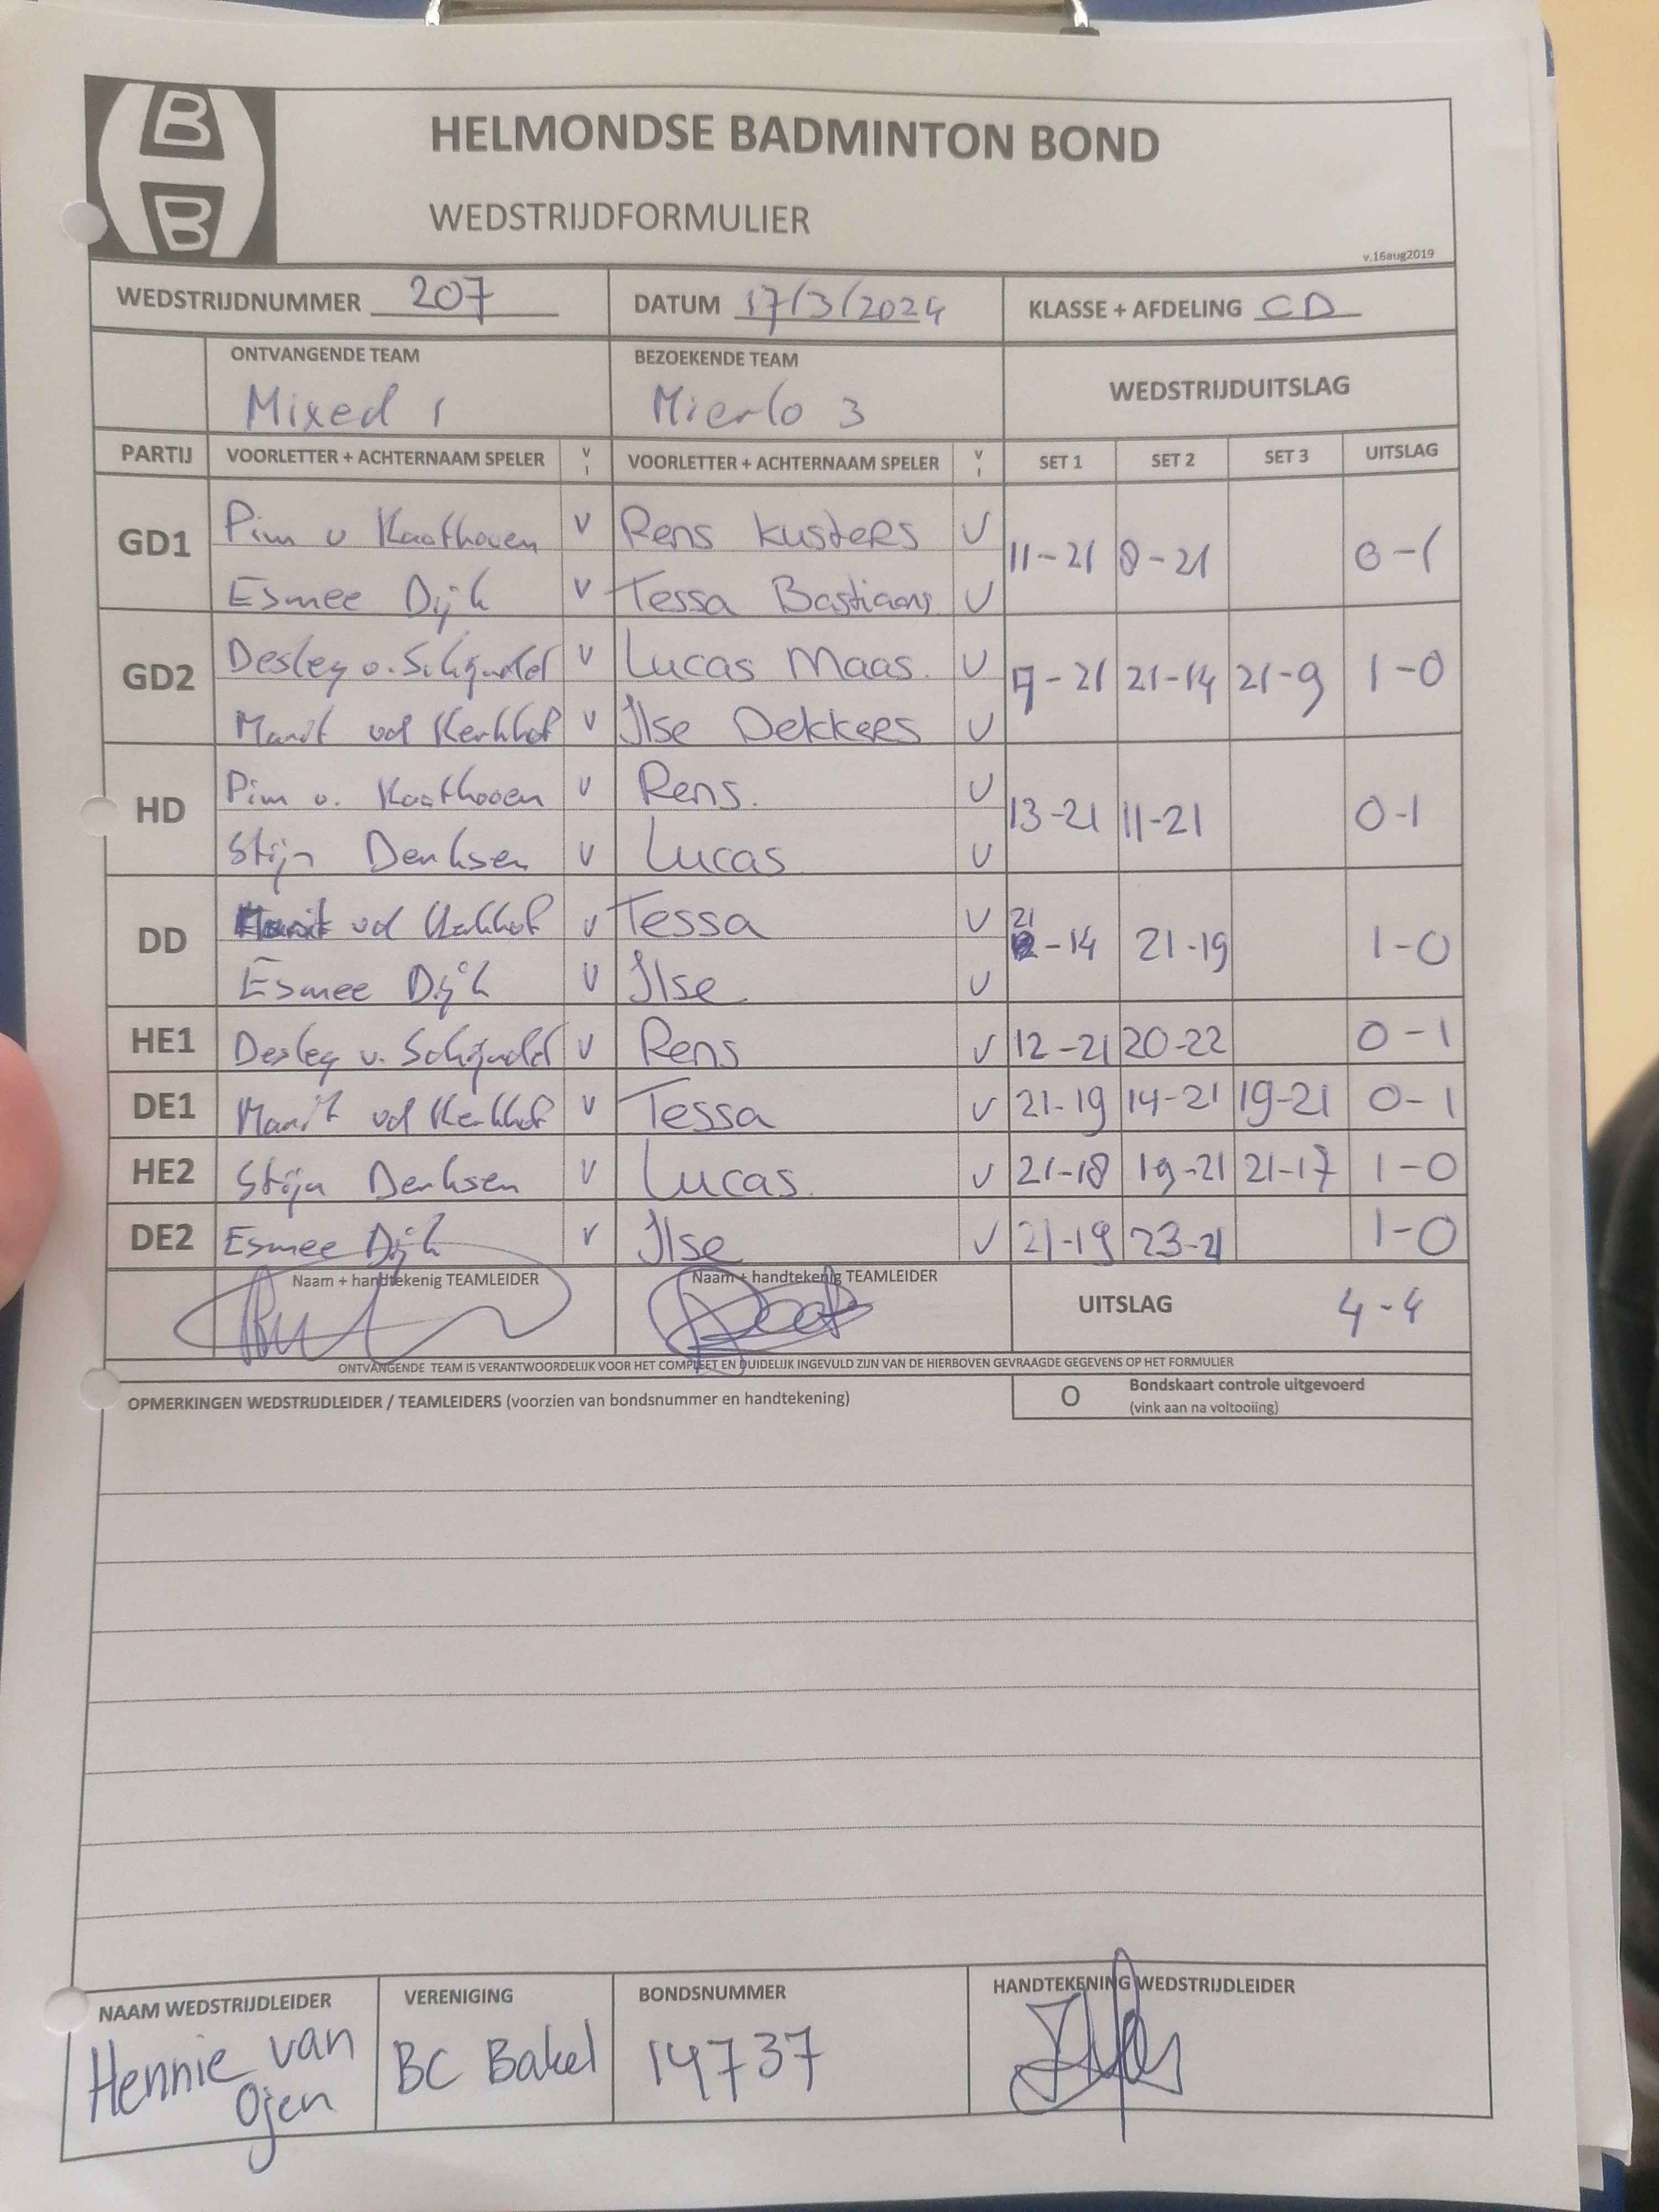 B
B
HELMONDSE BADMINTON BOND
WEDSTRIJDFORMULIER
v.16aug2019
WEDSTRIJDNUMMER 207 DATUM 17/3/2024 KLASSE + AFDELING CD
ONTVANGENDE TEAM BEZOEKENDE TEAM WEDSTRIJDUITSLAG
Mixed 1 Mierlo 3
PARTIJ VOORLETTER + ACHTERNAAM SPELER V I VOORLETTER + ACHTERNAAM SPELER V I SET 1 SET 2 SET 3 UITSLAG
GD1 Pim v Kaathoven V Rens Kusters V 11-21 8-21 0-1
Esmee Dijk V Tessa Bastiaans V
GD2 Desley v. Schijndel V Lucas Maas. V 7-21 21-14 21-9 1-0
Marit vd Kerkhof V Ilse Dekkers V
HD Pim v. Kaathoven V Rens. V 13-21 11-21 0-1
Stijn Derksen V Lucas V
DD Marit vd Kerkhof V Tessa V 21-14 21-19 1-0
Esmee Dijk V Ilse V
HE1 Desley v. Schijndel V Rens V 12-21 20-22 0-1
DE1 Marit vd Kerkhof V Tessa V 21-19 14-21 19-21 0-1
HE2 Stijn Derksen V Lucas. V 21-18 19-21 21-17 1-0
DE2 Esmee Dijk V Ilse V 21-19 23-21 1-0
Naam + handtekenig TEAMLEIDER Naam + handtekenig TEAMLEIDER UITSLAG 4-4
ONTVANGENDE TEAM IS VERANTWOORDELIJK VOOR HET COMPLEET EN DUIDELIJK INGEVULD ZIJN VAN DE HIERBOVEN GEVRAAGDE GEGEVENS OP HET FORMULIER
OPMERKINGEN WEDSTRIJDLEIDER / TEAMLEIDERS (voorzien van bondsnummer en handtekening) O Bondskaart controle uitgevoerd
(vink aan na voltooiing)
NAAM WEDSTRIJDLEIDER VERENIGING BONDSNUMMER HANDTEKENING WEDSTRIJDLEIDER
Hennie van BC Bakel 14737
Ojen